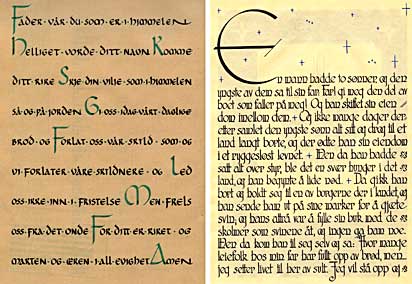 FADER·VÅR·DU·SOM·ER·I·HIMMELEN
HELLIGET·VORDE·DITT·NAVN KOMME
DITT·RIKE SKJE·DIN·VILJE·SOM·I·HIMMELEN
SÅ·OG·PÅ·JORDEN GI·OSS·IDAG·VÅRT·DAGLIGE
BRØD·OG FORLAT·OSS·VÅR·SKYLD·SOM·OG
VI·FORLATER·VÅRE·SKYLDNERE·OG LED
OSS·IKKE·INN·I·FRISTELSE MEN·FRELS
OSS·FRA·DET·ONDE FOR·DITT·ER·RIKET·OG
MAKTEN·OG·ÆREN·I·ALL·EVIGHET AMEN
En mann hadde to sønner, og den
yngste av dem sa til sin far: Far! gi meg den del av
boet som faller på meg! Og han skiftet sin eien-
dom imellem dem. + Og ikke mange dager der-
etter samlet den yngste sønn alt sitt og drog til et
land langt borte, og der ødte han sin eiendom
i et ryggesløst levnet. + Men da han hadde
satt alt over styr, ble det en svær hunger i det
land, og han begynte å lide nød. + Da gikk han
bort og holdt seg til en av borgerne der i landet, og
han sendte ham ut på sine marker for å gjete
svin; og hans attrå var å fylle sin buk med de
skolmer som svinene åt, og ingen ga ham noe.
Men da kom han til seg selv og sa: Hvor mange
leiefolk hos min far har fullt opp av brød, men
jeg setter livet til her av sult! Jeg vil stå opp og